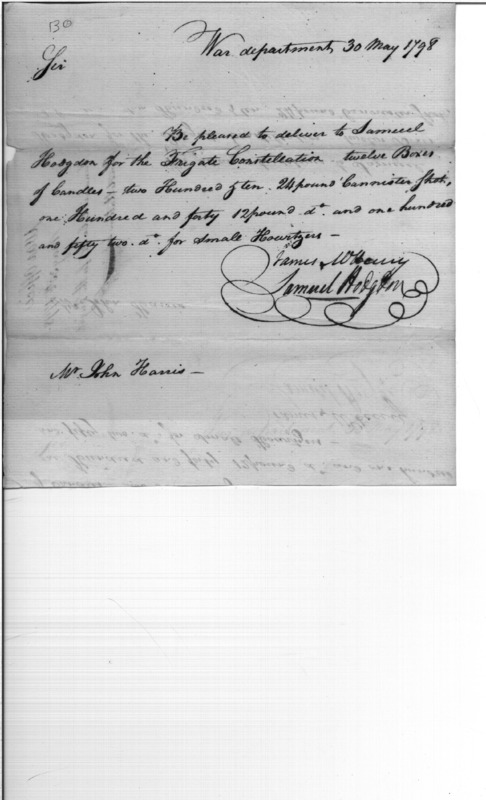 BO
War department 30 May 1798
Sir
Be pleased to deliver to Samuel
Hodgdon for the Frigate Constellation twelve Boxes
of Candles – two Hundred & ten 24 pound Cannister Shot,
one Hundred and forty 12 pound do. and one hundred
and fifty two do. for small Howitzers –
James McHenry
Samuel Hodgdon
Mr. John Harris –